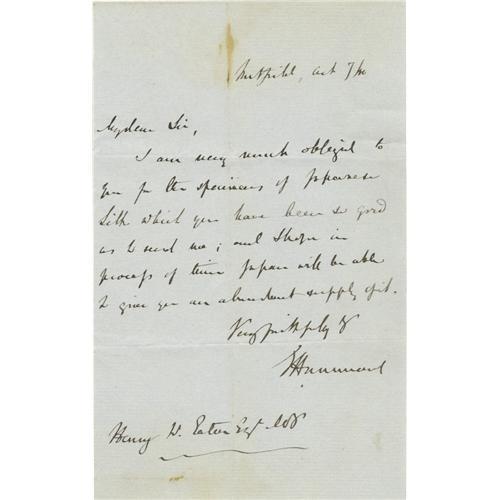 Nutfield, Oct 7/60
My dear Sir,
I am very much obliged to
you for the specimens of Japanese
Silk which you have been so good
as to send me; and I hope in
process of time Japan will be able
to give you an abundant supply of it.
Very faithfully Y
EHammond
Henry W. Eaton Esqr